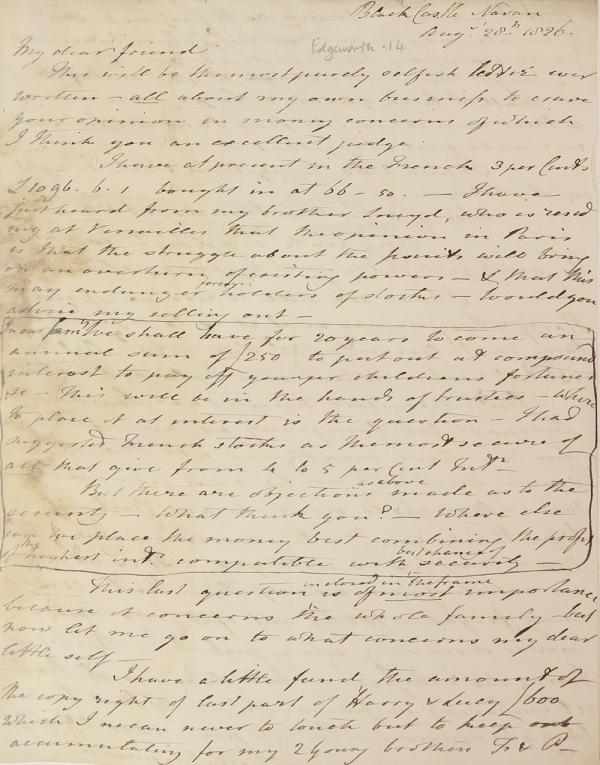 Black Castle Navan
Augt 28th 1826.
Edgeworth . 14
My dear friend
This will be the most purely selfish letter ever
written – all about my own business to crave
your opinion in money concerns of which
I think you an excellent judge
I have at present in the French 3 per Cents
£1096. 6. 1 bought in at 66 - 50 — I have
just heard from my brother Sneyd, who is resid
ing at Versailles that the opinion in Paris
is that the struggle about the Jesuits will bring
on an overturn of existing powers – & that this
may endanger foreign holders of stocks – Would you
advise my selling out –
we shall have for 20 years to come an
annual sum of £250 to put out at compound
interest to pay off younger childrens fortunes
&c – This will be in the hands of trustees – where
to place it at interest is the question – I had
suggested French stocks as the most secure of
all that give from 4 to 5 per Cent Intt
But there are objections as above made as to the
security – What think you? – Where else
can we place the money best combining the
highest intt compatible with best chance of security —
This last question inclosed in the frame is of most importance
because it concerns the whole family – but
now let me go on to what concerns my dear
little self –
I have a little fund the amount of
the copy right of last part of Harry & Lucy £600
which I mean never to touch but to keep out
accumulating for my 2 young brothers Fr & P–